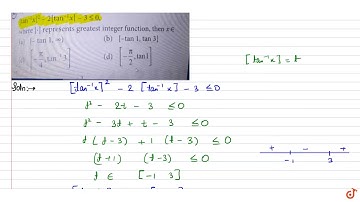 [tan⁻¹x]² – 2[tan⁻¹x] – 3 ≤ 0,
where [·] represents greatest integer function, then x ∈
(a) [– tan 1, ∞) (b) [– tan 1, tan 3]
(d) [–π/2, tan 1]
[tan⁻¹x] = t
Soln:→ [tan⁻¹x]² – 2 [tan⁻¹x] – 3 ≤ 0
t² – 2t – 3 ≤ 0
t² – 3t + t – 3 ≤ 0
t (t – 3) + 1 (t – 3) ≤ 0
(t + 1) (t – 3) ≤ 0
+ – +
–1 3
t ∈ [–1 3]